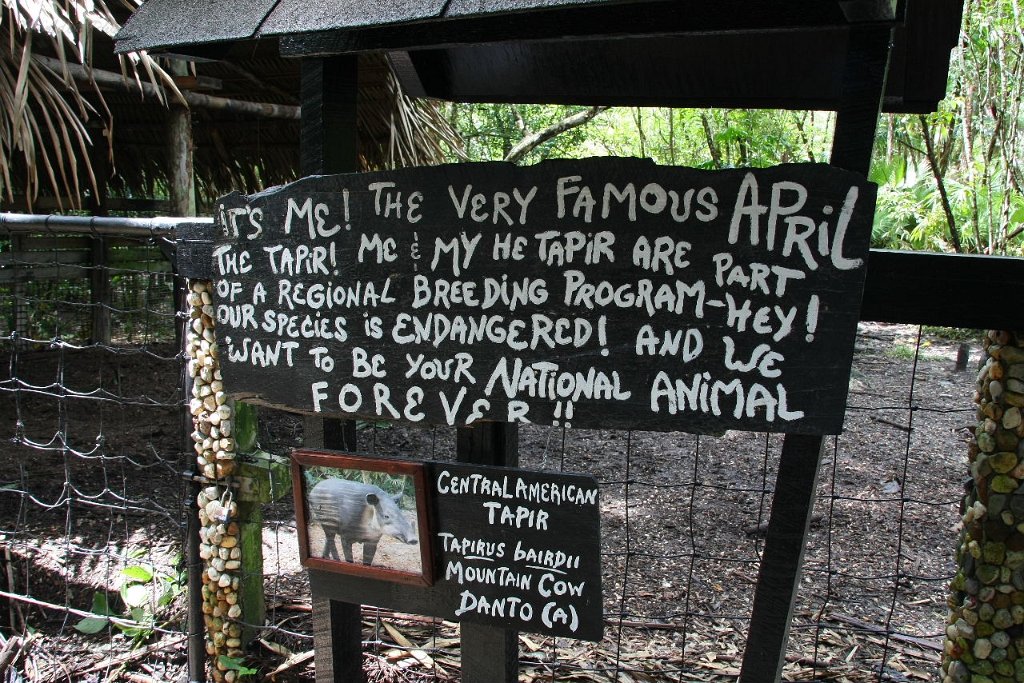 IT'S ME! THE VERY FAMOUS APRIL
THE TAPIR! ME & MY HE TAPIR ARE PART
OF A REGIONAL BREEDING PROGRAM-HEY!
OUR SPECIES IS ENDANGERED! AND WE
WANT TO BE YOUR NATIONAL ANIMAL
FOREVER!!
CENTRAL AMERICAN
TAPIR
TAPIRUS bAIRDII
MOUNTAIN COW
DANTO (A)